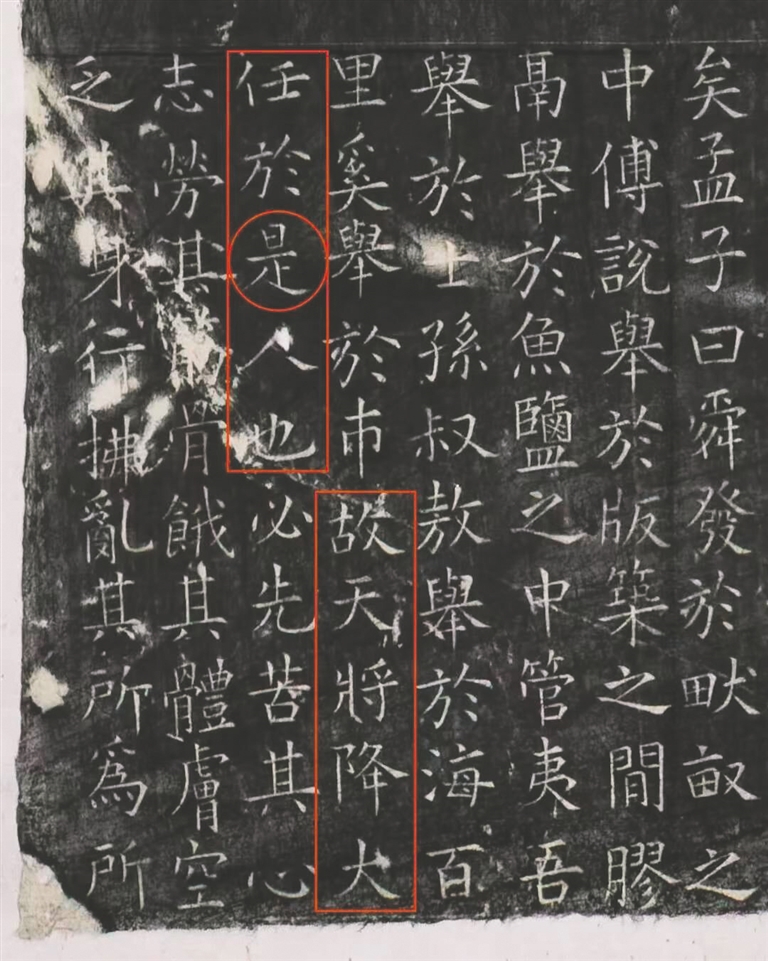 矣孟子曰舜發於畎畝之
中傅說舉於版築之閒膠
鬲舉於魚鹽之中管夷吾
舉於士孫叔敖舉於海百
里奚舉於市故天將降大
任於是人也必先苦其心
志勞其筋骨餓其體膚空
乏其身行拂亂其所爲所